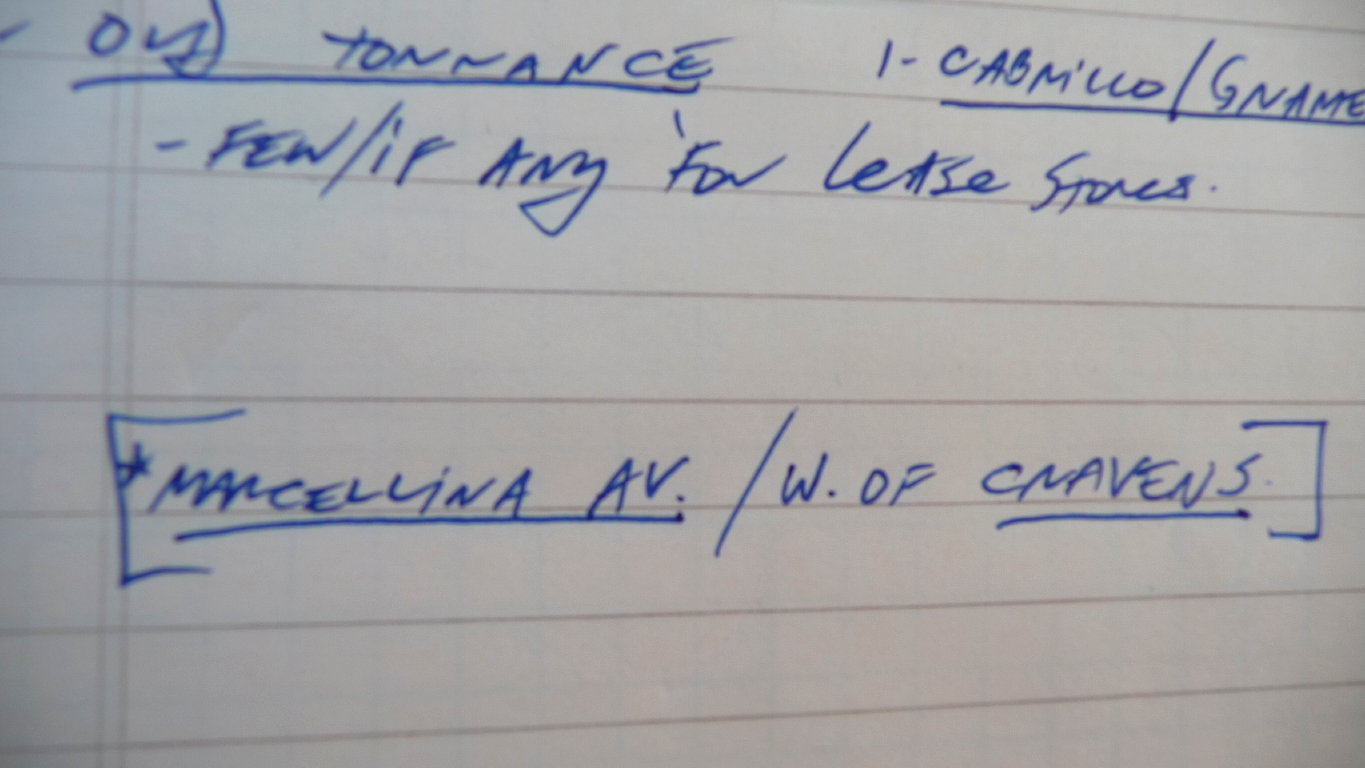 - OLD TORRANCE 1- CABRILLO/GRAME
- FEW/iF ANy FOR LeASe STORES.
[* MARCELLiNA AV. / W. OF CRAVENS.]